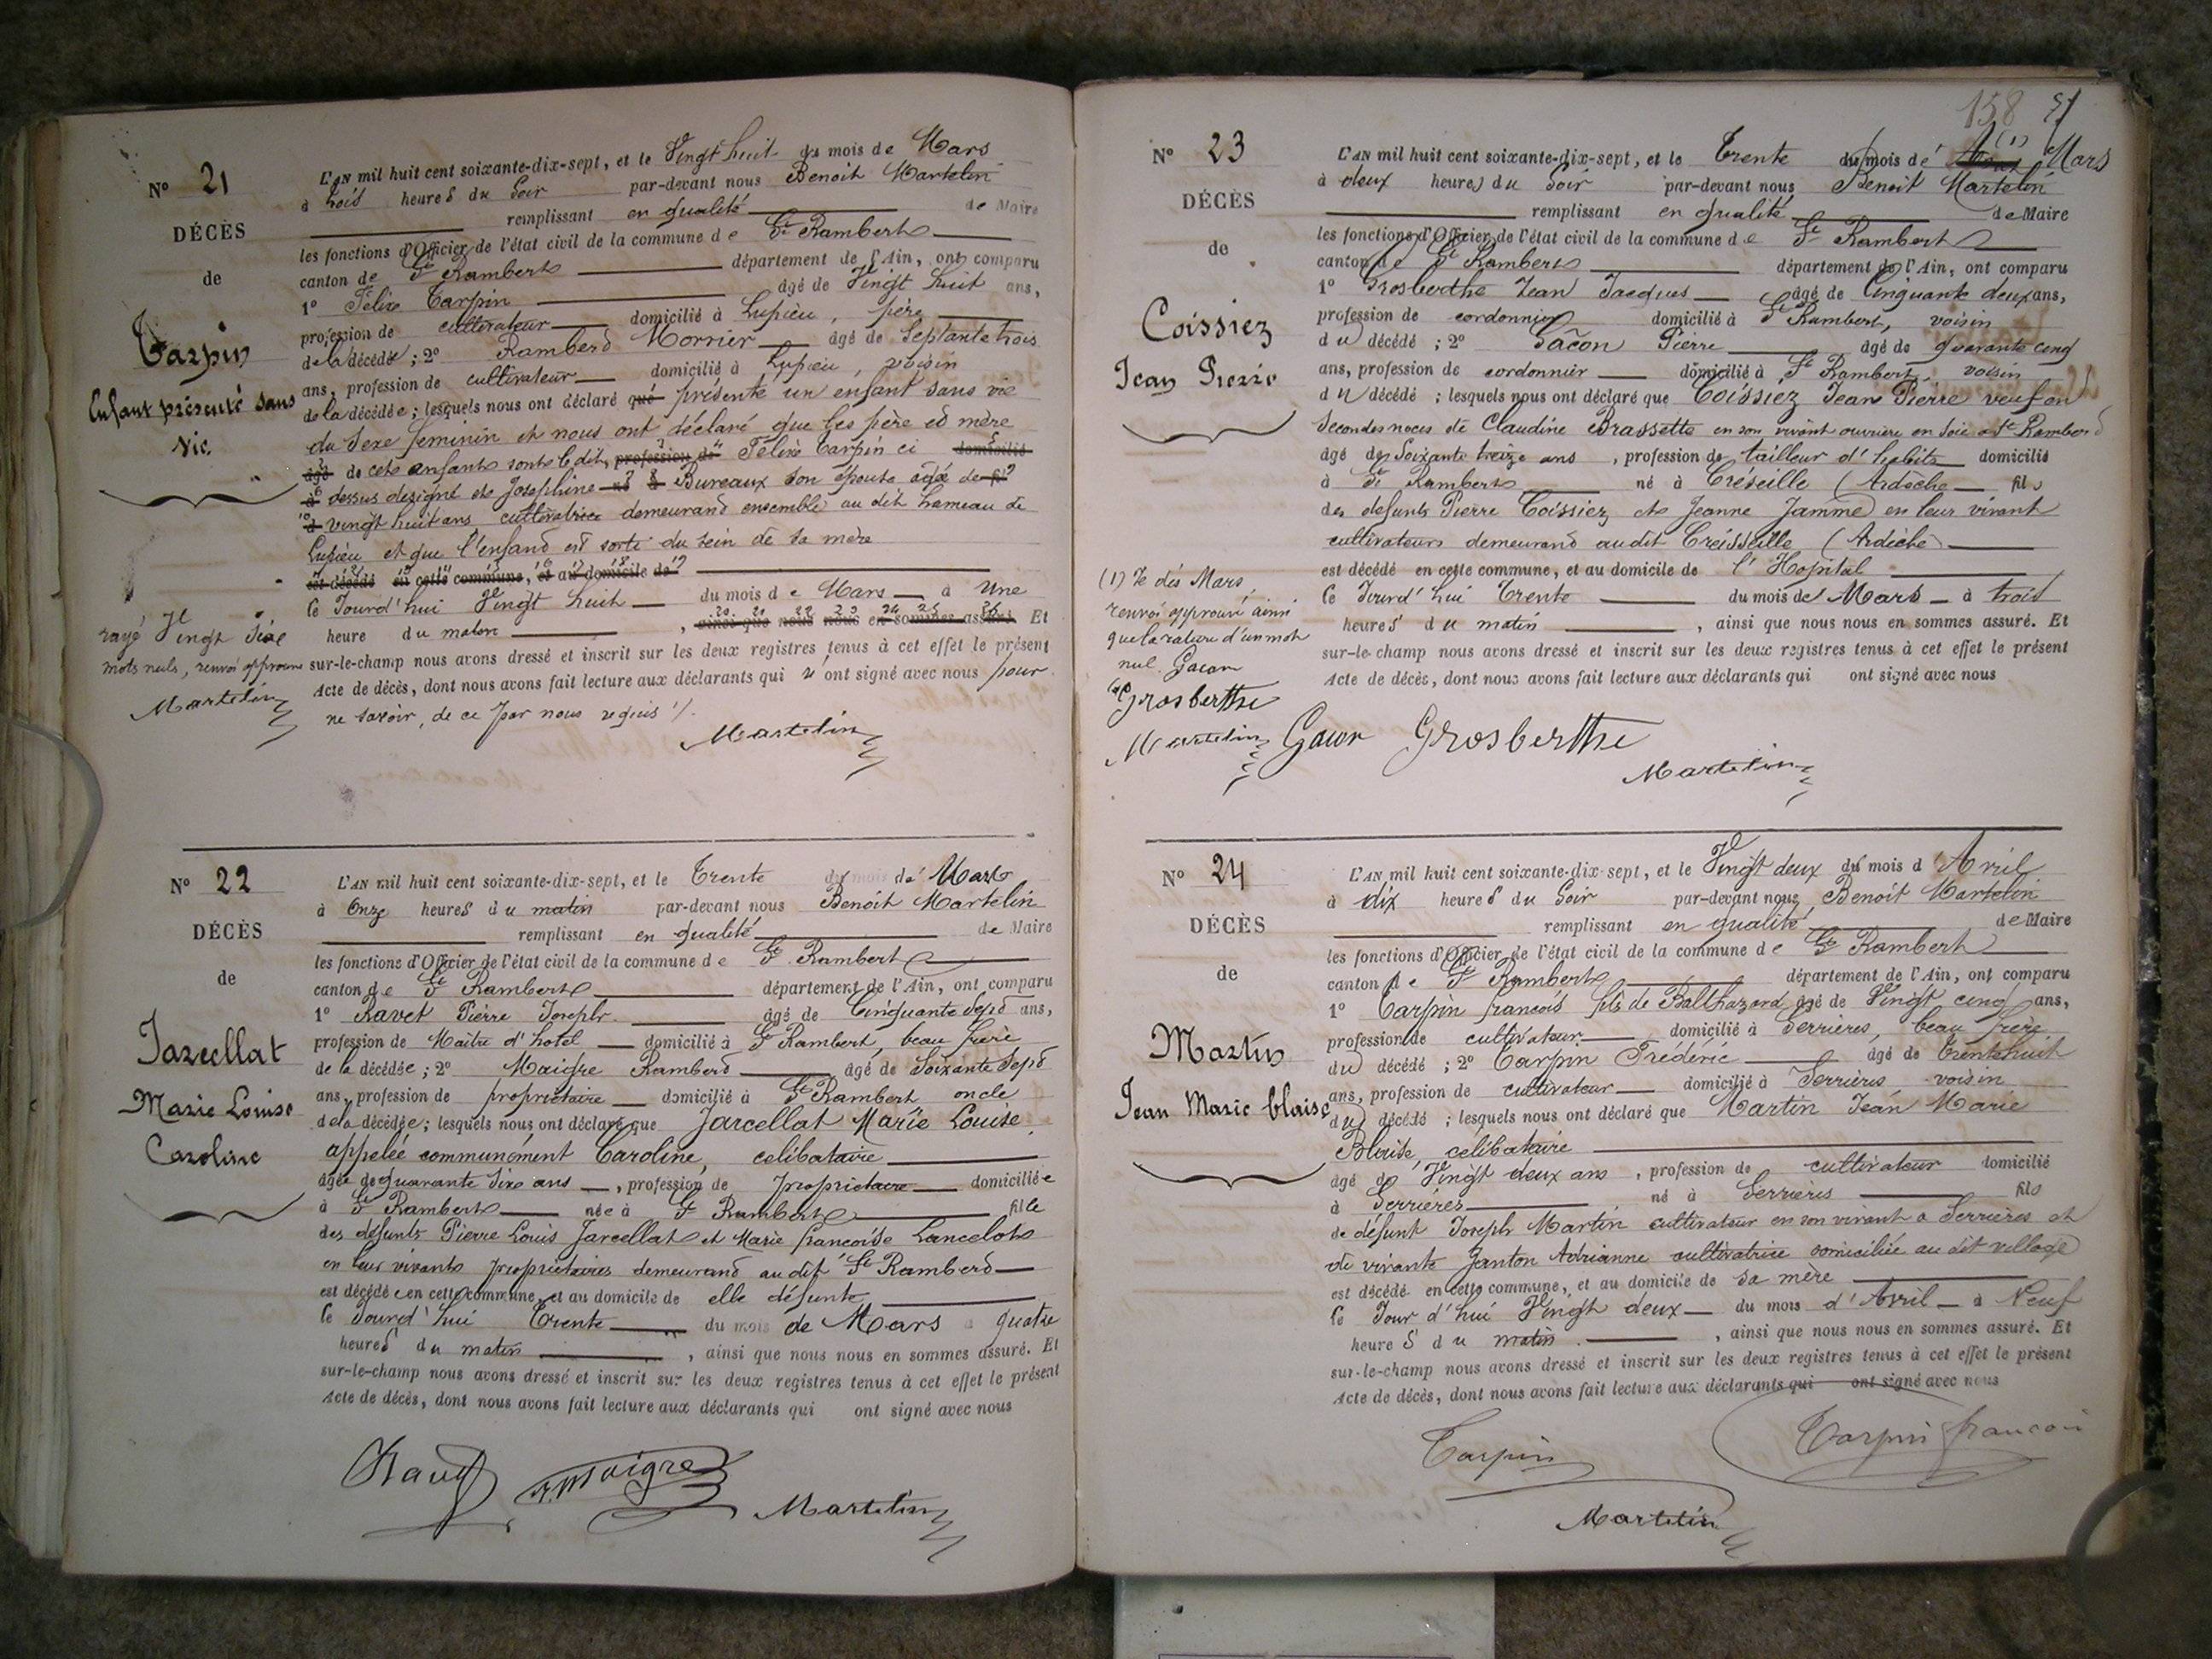 N° 21
DÉCÈS
de
Tarpin
Enfant présenté sans
vie
L'AN mil huit cent soixante-dix-sept, et le Vingt huit du mois de Mars
à trois heures du Soir par-devant nous Benoit Martelin
remplissant en qualité de Maire
les fonctions d'Officier de l'état civil de la commune de St Rambert
canton de St Rambert département de l'Ain, ont comparu
1° Félix Tarpin âgé de Vingt huit ans,
profession de cultivateur domicilié à Lupieu, père
de la décédée ; 2° Rambert Morrier âgé de Septante trois
ans, profession de cultivateur domicilié à Lupieu, voisin
de la décédée ; lesquels nous ont déclaré qué présenté un enfant sans vie
du Sexe feminin et nous ont déclaré que les père et mère
âgé de cet enfant sont le dit, profession de Félix Tarpin ci domicilié
à dessus designé et Josephine né à Bureaux son épouse agée de fil
d vingt huit ans cultivatrice demeurant ensemble au dit hameau de
Lupieu et que l'enfant est sorti du sein de sa mère
est décédé en cette commune, et au domicile de
le Jourd'hui Vingt huit du mois de Mars à Une
heure du matin , ainsi que nous nous en sommes assuré. Et
sur-le-champ nous avons dressé et inscrit sur les deux registres tenus à cet effet le présent
Acte de décès, dont nous avons fait lecture aux déclarants qui n'ont signé avec nous pour
ne savoir, de ce par nous requis
Martelin
rayé Vingt Six
mots nuls, renvoi approuvé
Martelin
N° 22
DÉCÈS
de
Jarcellat
Marie Louise
Caroline
L'AN mil huit cent soixante-dix-sept, et le Trente du mois de Mars
à Onze heures du matin par-devant nous Benoit Martelin
remplissant en qualité de Maire
les fonctions d'Officier de l'état civil de la commune de St Rambert
canton de St Rambert département de l'Ain, ont comparu
1° Ravet Pierre Joseph âgé de Cinquante Sept ans,
profession de Maitre d'hotel domicilié à St Rambert, beau frère
de la décédée ; 2° Maigre Rambert âgé de Soixante Sept
ans, profession de propriétaire domicilié à St Rambert oncle
de la décédée ; lesquels nous ont déclaré que Jarcellat Marie Louise
appelée communément Caroline, celibataire
âgée de quarante Six ans , profession de propriétaire domiciliée
à St Rambert née à St Rambert fille
des défunts Pierre Louis Jarcellat et Marie françoise Lancelot
en leur vivants propriétaires demeurant au dit St Rambert
est décédée en cette commune, et au domicile de elle défunte
le Jourd'hui Trente du mois de Mars à quatre
heures du matin , ainsi que nous nous en sommes assuré. Et
sur-le-champ nous avons dressé et inscrit sur les deux registres tenus à cet effet le présent
Acte de décès, dont nous avons fait lecture aux déclarants qui ont signé avec nous
Maigre
Martelin
158
N° 23
DÉCÈS
de
Coissiez
Jean Pierre
L'AN mil huit cent soixante-dix-sept, et le Trente du mois de (1) Mars
à deux heures du Soir par-devant nous Benoit Martelin
remplissant en qualité de Maire
les fonctions d'Officier de l'état civil de la commune de St Rambert
canton de St Rambert département de l'Ain, ont comparu
1° Grosberthe Jean Jacques âgé de Cinquante deux ans,
profession de cordonnier domicilié à St Rambert, voisin
du décédé ; 2° Gacon Pierre âgé de quarante cinq
ans, profession de cordonnier domicilié à St Rambert, voisin
du décédé ; lesquels nous ont déclaré que Coissiez Jean Pierre veuf en
Secondes noces de Claudine Brassette en son vivant ouvriere en Soie a St Rambert
âgé de Soixante treize ans , profession de tailleur d'habits domicilié
à St Rambert né à Créseille (Ardèche fils
des defunts Pierre Coissiez et Jeanne Jamme en leur vivant
cultivateurs demeurant audit Creisseille (Ardèche)
est décédé en cette commune, et au domicile de l'Hopital
le Jourd'hui Trente du mois de Mars à trois
heures du matin , ainsi que nous nous en sommes assuré. Et
sur-le-champ nous avons dressé et inscrit sur les deux registres tenus à cet effet le présent
Acte de décès, dont nous avons fait lecture aux déclarants qui ont signé avec nous
(1) Je dis Mars,
renvoi approuvé ainsi
que la rature d'un mot
nul. Gacon
Grosberthe
Martelin
Gacon Grosberthe
Martelin
N° 24
DÉCÈS
de
Martin
Jean Marie blaise
L'AN mil huit cent soixante-dix-sept, et le Vingt deux du mois d'Avril
à dix heures du Soir par-devant nous Benoit Martelin
remplissant en qualité de Maire
les fonctions d'Officier de l'état civil de la commune de St Rambert
canton de St Rambert département de l'Ain, ont comparu
1° Tarpin francois fils de Balthazard âgé de Vingt cinq ans,
profession de cultivateur domicilié à Serrières, beau frère
du décédé ; 2° Tarpin Frédéric âgé de trente huit
ans, profession de cultivateur domicilié à Serrières, voisin
du décédé ; lesquels nous ont déclaré que Martin Jean Marie
Blaise, celibataire
âgé de Vingt deux ans , profession de cultivateur domicilié
à Serrières né à Serrières fils
de défunt Joseph Martin cultivateur en son vivant a Serrières et
de vivante Janton Adrianne cultivatrice domiciliée au dit village
est décédé en cette commune, et au domicile de sa mère
le Jour d'hui Vingt deux du mois d'Avril à Neuf
heures du matin , ainsi que nous nous en sommes assuré. Et
sur-le-champ nous avons dressé et inscrit sur les deux registres tenus à cet effet le présent
Acte de décès, dont nous avons fait lecture aux déclarants qui ont signé avec nous
Tarpin
Tarpin francoi
Martelin